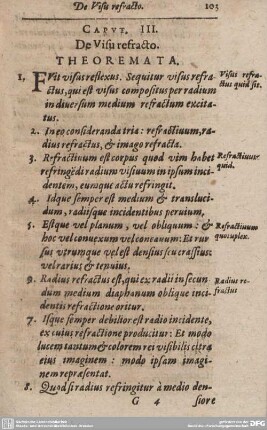 De Visu refracto. 103
CAPVT. III.
De Visu refracto.
THEOREMATA.
1. FVit visus reflexus. Sequitur visus refra-
ctus, qui est visus compositus per radium
in diversum medium refractum excita-
tus.
Visus refra-
ctus quid sit.
2. In eo consideranda tria: refractivum, ra-
dius refractus, & imago refracta.
3. Refractivum est corpus quod vim habet
refringẽdi radium visivum in ipsum inci-
dentem, eumque actu refringit.
Refractivum
quid.
4. Idque semper est medium & transluci-
dum, radiisque incidentibus pervium,
5. Estque vel planum, vel obliquum: &
hoc vel convexum vel concavum: Et rur
sus vtrumque vel est densius seu crassius:
vel rarius & tenuius.
Refractivum
quotuplex.
9. Radius refractus est, qui ex radii in secun
dum medium diaphanum oblique inci-
dentis refractione oritur.
Radius re-
fractus
7. Isque semper debilior est radio incidente,
ex cuius refractione producitur: Et modo
lucem tantum & colorem rei visibilis citra
eius imaginem: modo ipsam imagi-
nem repræsentat.
8. Quod si radius refringitur à medio den-
G 4 siore
DFG